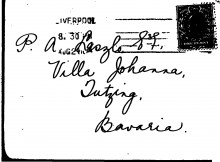 LIVERPOOL
8. 30 P
P. A. Laszlo Esq.
Villa Johanna,
Tutzing,
Bavaria.